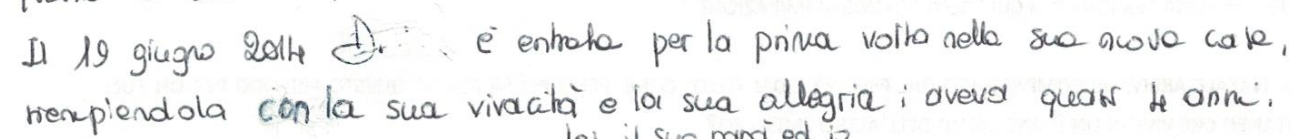 Il 19 giugno 2014 D. è entrata per la prima volta nella sua nuova casa,
riempiendola con la sua vivacità e la sua allegria: aveva quasi 4 anni.